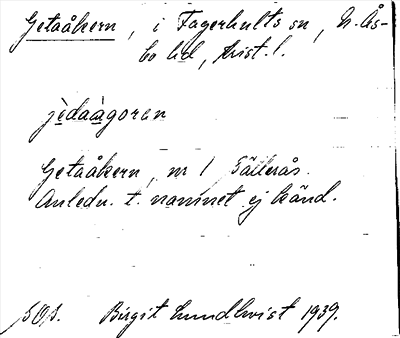 Getaåkern, i Fagerhults sn, N. Ås-
bo hd, Krist. l.
jèdaàgoren
Getaåkern, nr 1 Fällerås.
Anledn. t. namnet ej känd.
Birgit Lundkvist 1939.